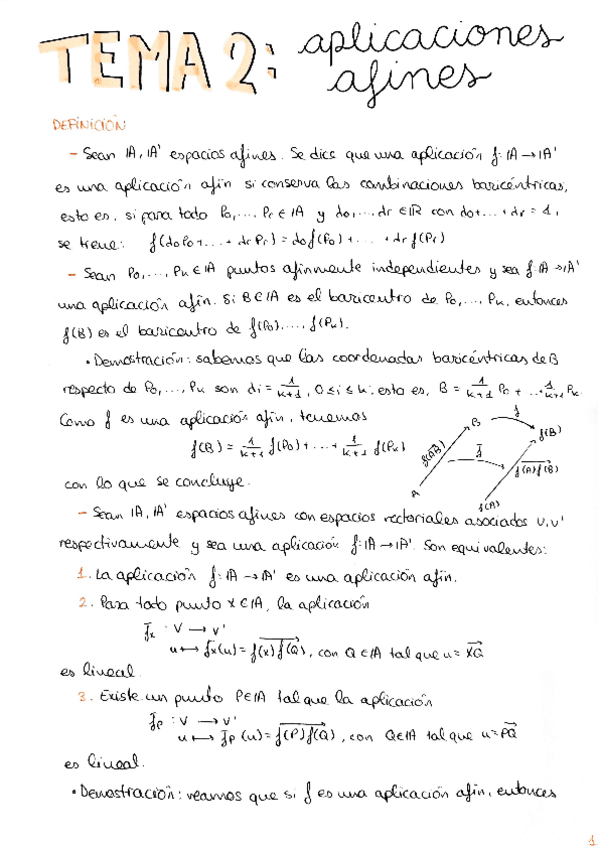 TEMA 2: aplicaciones
afines
DEFINICIÓN
- Sean 𝔸, 𝔸' espacios afines. Se dice que una aplicación f: 𝔸 → 𝔸'
es una aplicación afín si conserva las combinaciones baricéntricas,
esto es, si para todo P₀, ..., Pr ∈ 𝔸 y α₀, ... αr ∈ ℝ con α₀ + ... + αr = 1,
se tiene: f(α₀P₀ + ... + αr Pr) = α₀ f(P₀) + ... + αr f(Pr)
- Sean P₀, ..., Pk ∈ 𝔸 puntos afínmente independientes y sea f: 𝔸 → 𝔸'
una aplicación afín. Si B ∈ 𝔸 es el baricentro de P₀, ..., Pk, entonces
f(B) es el baricentro de f(P₀), ..., f(Pk).
• Demostración: sabemos que las coordenadas baricéntricas de B
respecto de P₀, ..., Pk son αi = 1/(k+1), 0 ≤ i ≤ k, esto es, B = 1/(k+1) P₀ + ... + 1/(k+1) Pk
Como f es una aplicación afín, tenemos
f(B) = 1/(k+1) f(P₀) + ... + 1/(k+1) f(Pk)
B f f(B)
f(AB) f̄ f(A)f(B)
A f(A)
con lo que se concluye.
- Sean 𝔸, 𝔸' espacios afines con espacios vectoriales asociados V, V'
respectivamente y sea una aplicación f: 𝔸 → 𝔸'. Son equivalentes:
1. La aplicación f: 𝔸 → 𝔸' es una aplicación afín.
2. Para todo punto X ∈ 𝔸, la aplicación
f̄x : V → V'
u ↦ f̄x(u) = f(X)f(Q), con Q ∈ 𝔸 tal que u = XQ
es lineal.
3. Existe un punto P ∈ 𝔸 tal que la aplicación
f̄p : V → V'
u ↦ f̄p(u) = f(P)f(Q), con Q ∈ 𝔸 tal que u = PQ
es lineal.
• Demostración: veamos que si f es una aplicación afín, entonces
1